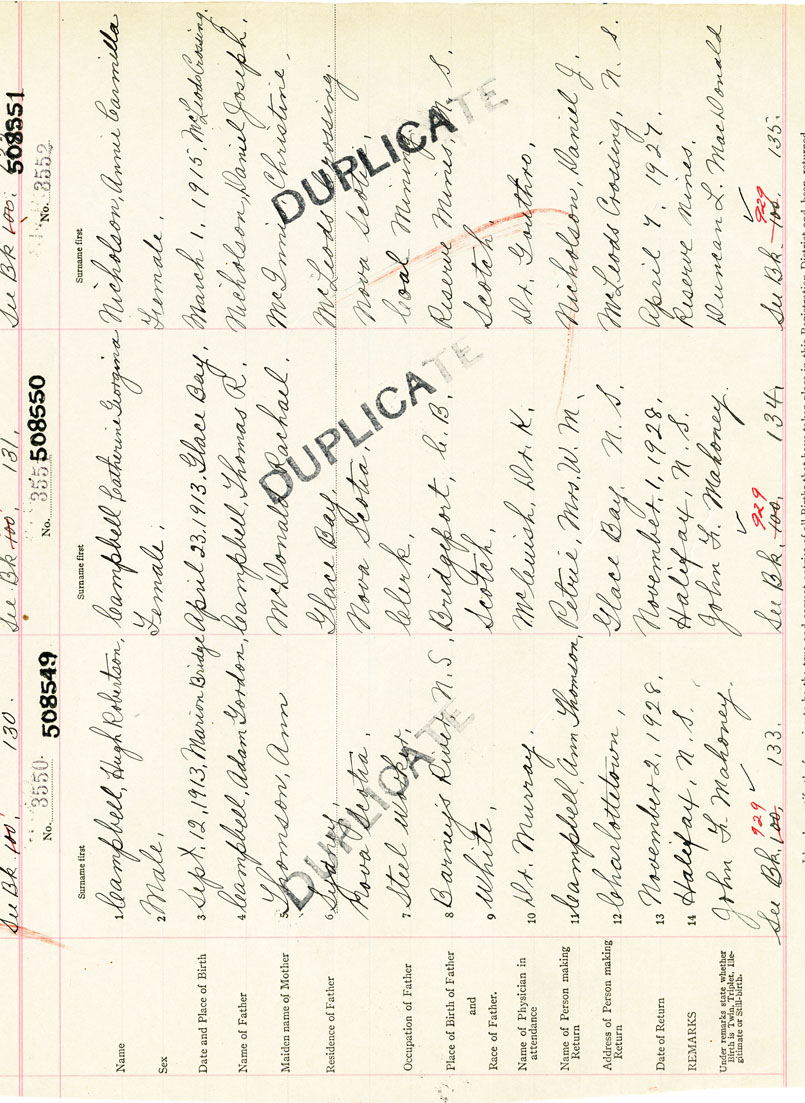 See Bk 100, 130.
See Bk 100, 131.
See Bk 100,
No. 3550
508549
No. 355
508550
No. 3552
508551
Surname first
Surname first
Surname first
Name
1 Campbell, Hugh Robertson,
Campbell Catherine Georgina
Nicholson, Annie Carmilla
Sex
2 Male,
Female,
Female,
Date and Place of Birth
3 Sept. 12, 1913, Marion Bridge
April 23, 1913, Glace Bay,
March 1, 1915 McLeods Crossing
Name of Father
4 Campbell, Adam Gordon,
Campbell, Thomas R.
Nicholson, Daniel Joseph,
Maiden name of Mother
5 Thomson, Ann
McDonald Rachael.
McInnis Christine,
Residence of Father
6 Sydney,
Glace Bay
McLeods Crossing.
Nova Scotia,
Nova Scotia,
Nova Scotia,
Occupation of Father
7 Steel Worker
Clerk,
Coal Mining
Place of Birth of Father
8 Barneys River N.S,
Bridgeport, C.B.
Reserve Mines, N.S.
and
Race of Father.
9 White,
Scotch,
Scotch
Name of Physician in
attendance
10 Dr. Murray.
Dr. K.
Dr. Gouthro,
Name of Person making
Return
11 Campbell, Ann Thomson,
Petrie, Mrs. W. M.
Nicholson, Daniel J.
Address of Person making
Return
12 Charlottetown,
Glace Bay N.S.
McLeods Crossing, N.S.
Date of Return
13 November 2, 1928.
November, 1, 1928.
April 7, 1927.
REMARKS
14 Halifax, N.S.
Halifax, N.S.
Reserve Mines.
Under remarks state whether
Birth is Twin, Triplet, Ille-
gitimate or Still-birth.
John F. Mahoney.
John F. Mahoney.
Duncan L. MacDonald
929
929
929
See Bk 100, 133.
See Bk, 100, 134,
See Bk 100, 135.
DUPLICATE
DUPLICATE
DUPLICATE